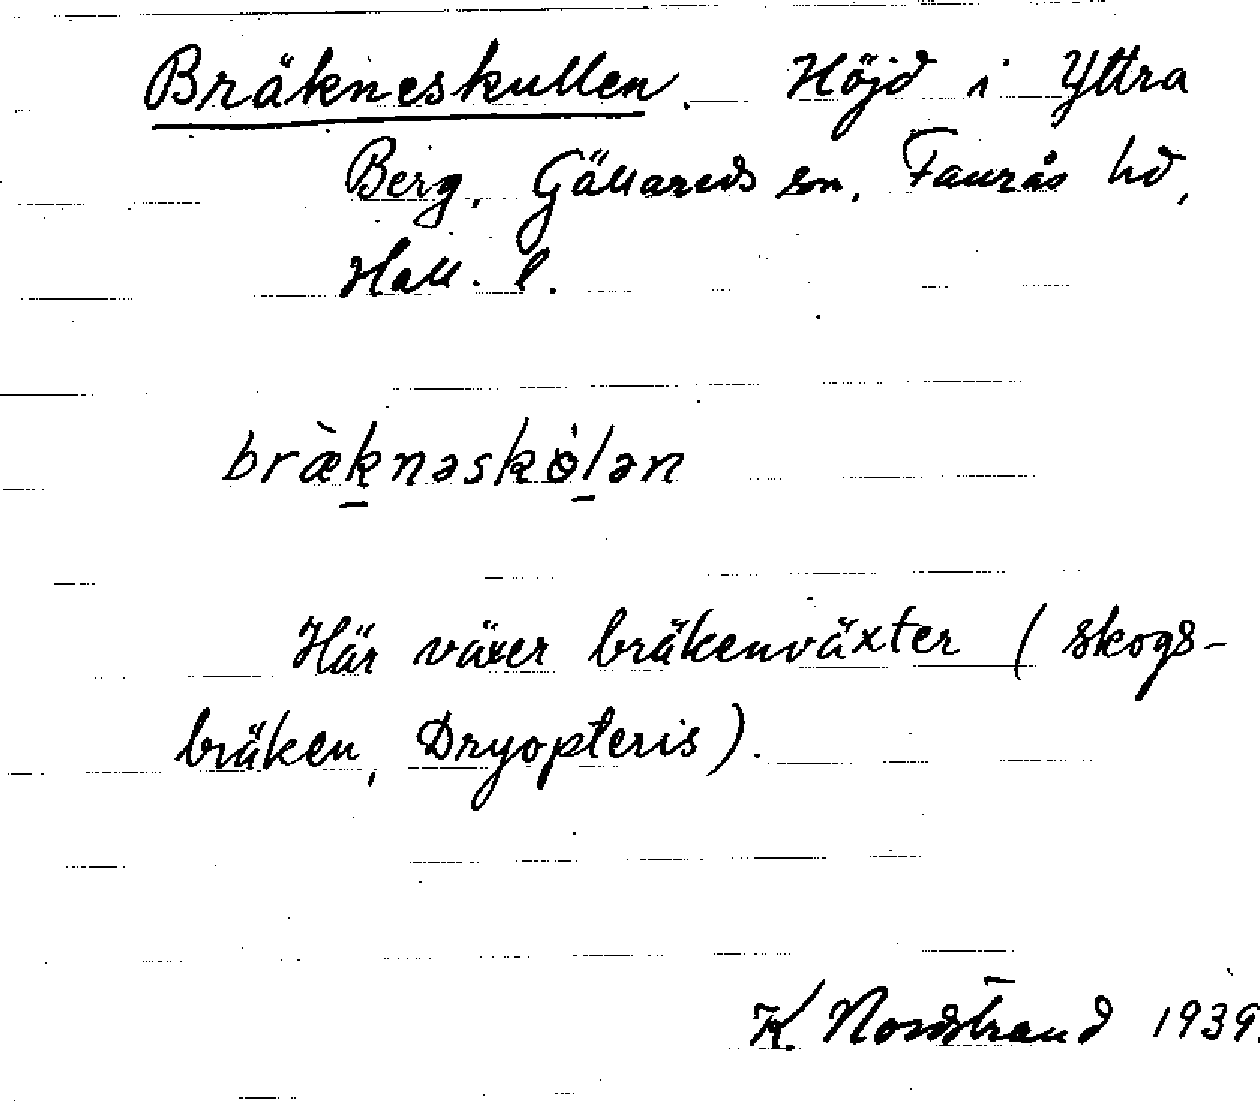 Bräkneskullen. Höjd i Yttra
Berg, Gällareds sn, Faurås hd,
Hall. l.
bræ̀k̠nəskө̇l̠ən
Här växer bräkenväxter (skogs-
bräken, Dryopteris).
K. Nordstrand 1939.